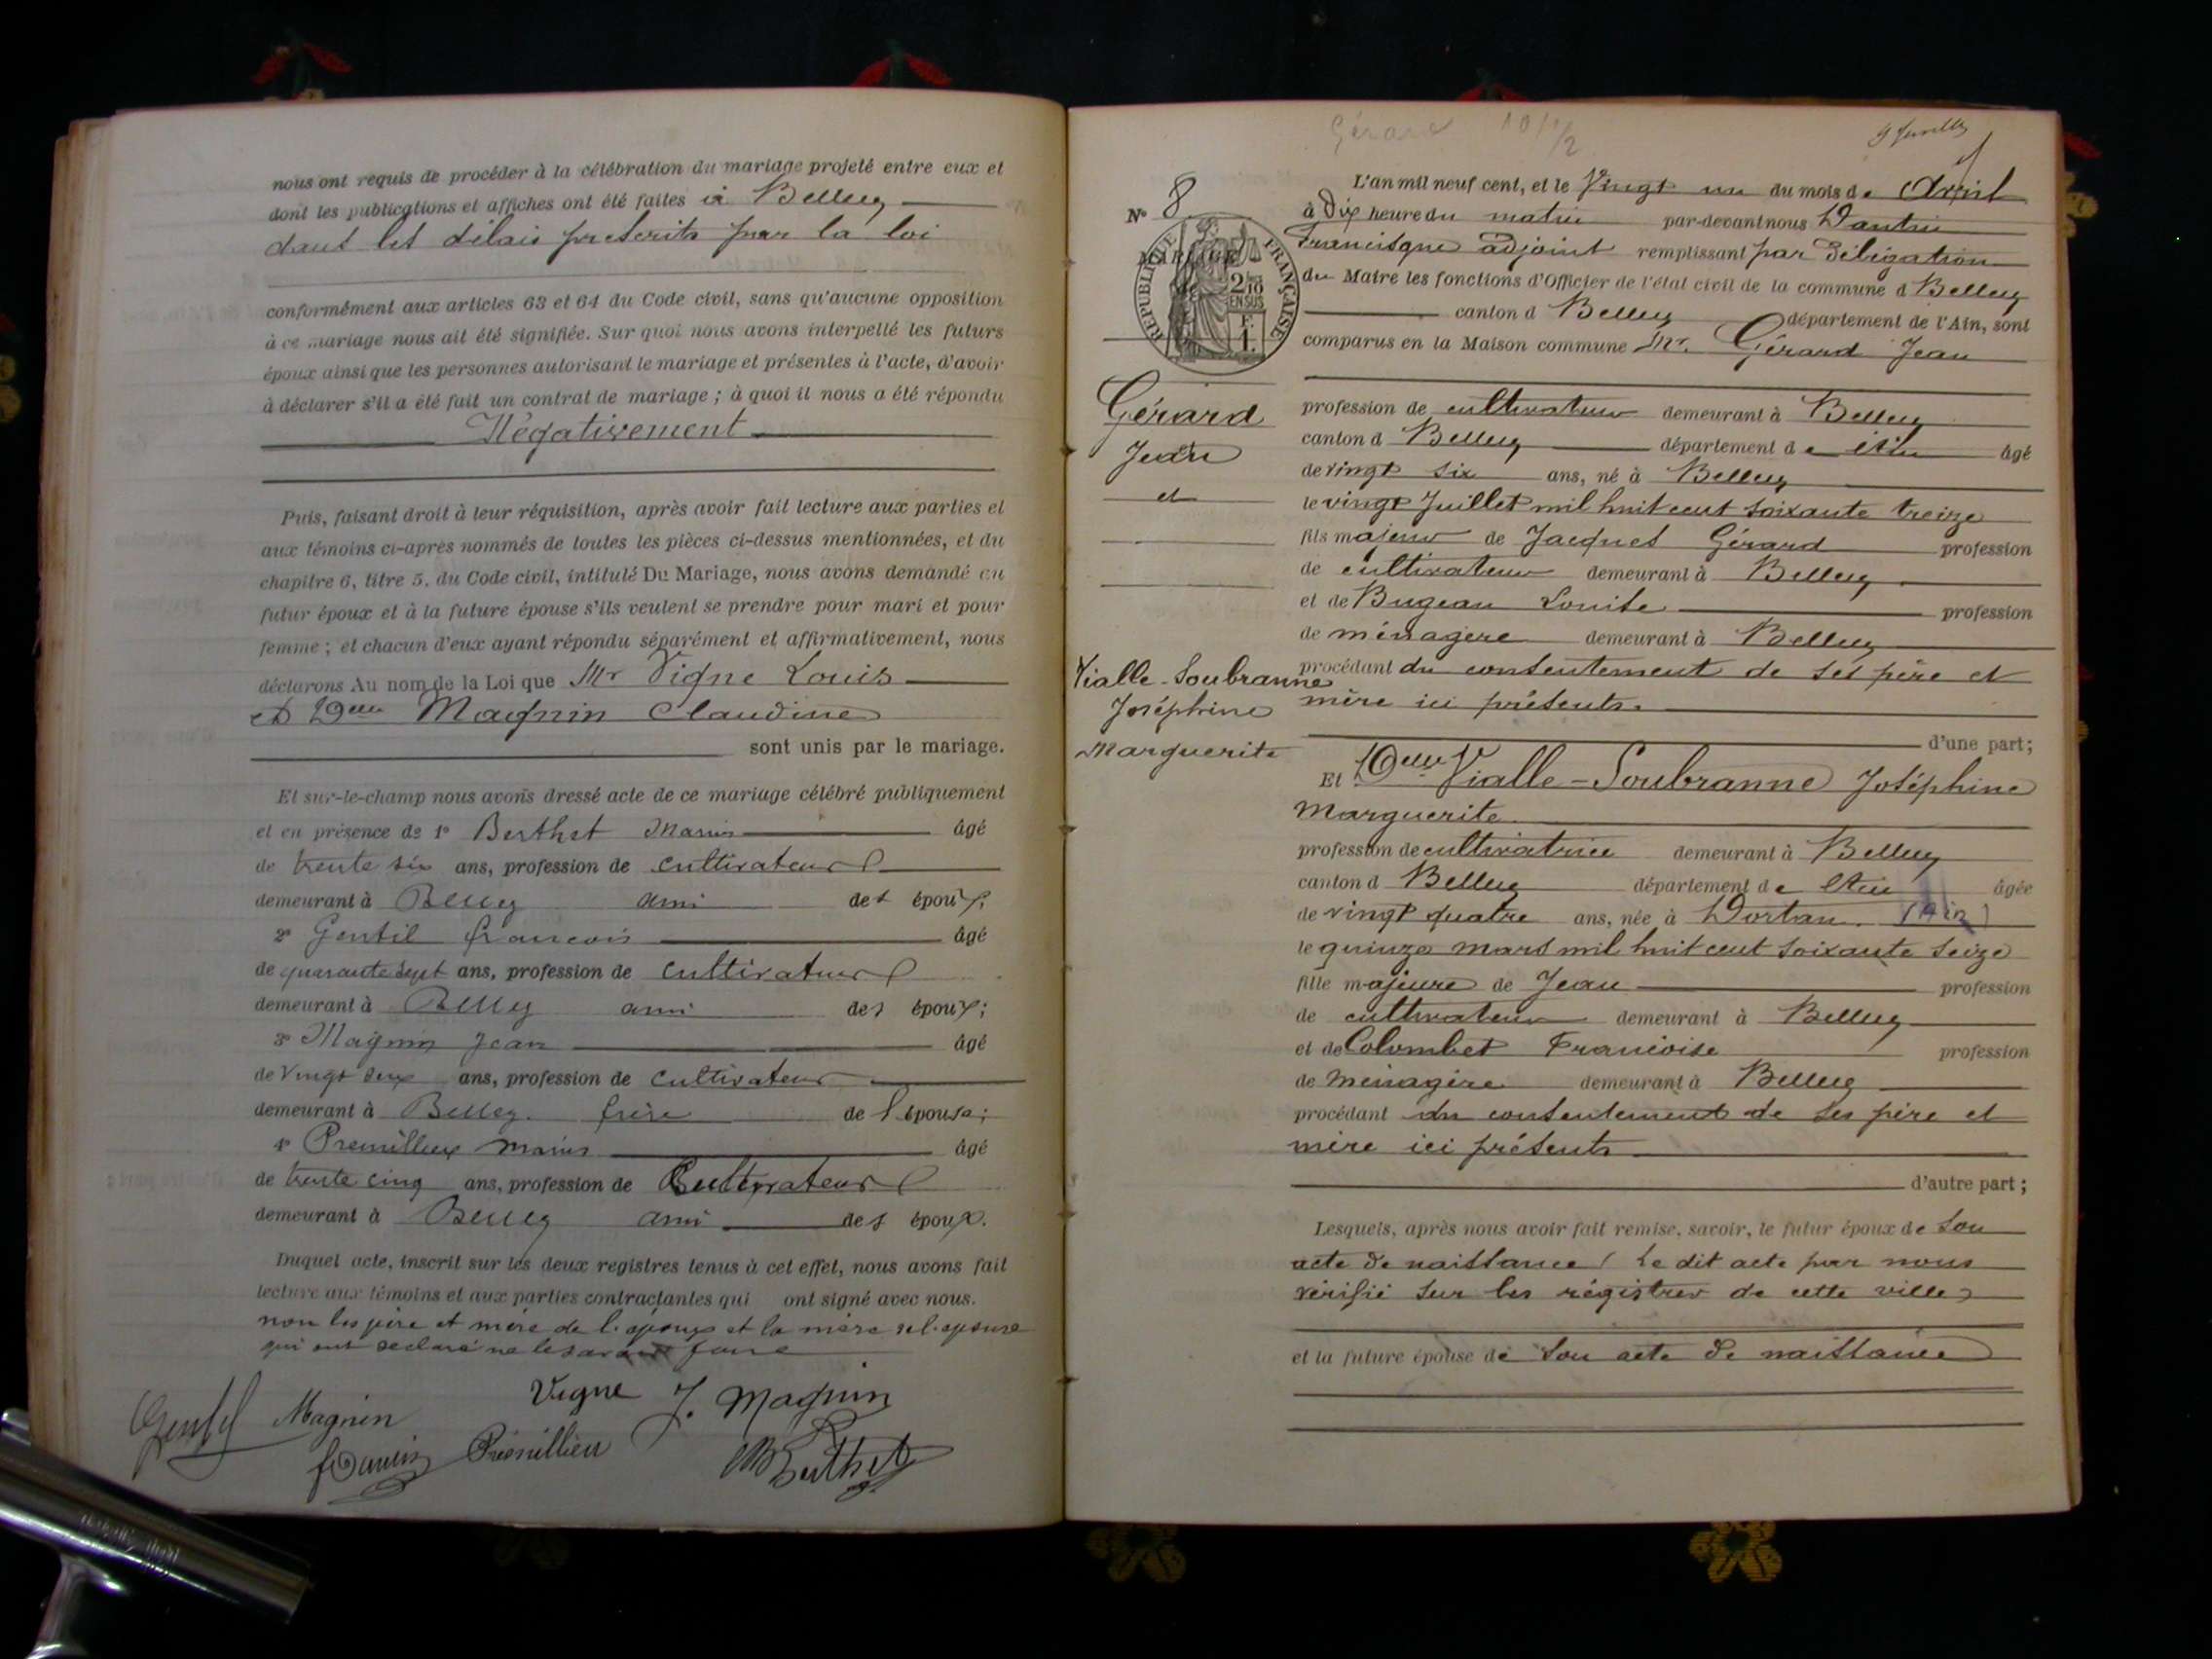 nous ont requis de procéder à la célébration du mariage projeté entre eux et
dont les publications et affiches ont été faites à Belley
dans les délais prescrits par la loi
conformément aux articles 63 et 64 du Code civil, sans qu'aucune opposition
à ce mariage nous ait été signifiée. Sur quoi nous avons interpellé les futurs
époux ainsi que les personnes autorisant le mariage et présentes à l'acte, d'avoir
à déclarer s'il a été fait un contrat de mariage ; à quoi il nous a été répondu
Négativement
Puis, faisant droit à leur réquisition, après avoir fait lecture aux parties et
aux témoins ci-après nommés de toutes les pièces ci-dessus mentionnées, et du
chapitre 6, titre 5. du Code civil, intitulé Du Mariage, nous avons demandé au
futur époux et à la future épouse s'ils veulent se prendre pour mari et pour
femme ; et chacun d'eux ayant répondu séparément et affirmativement, nous
déclarons Au nom de la Loi que Mr Vigne Louis
et Delle Magnin Claudine
sont unis par le mariage.
Et sur-le-champ nous avons dressé acte de ce mariage célébré publiquement
et en présence de 1° Berthet Marius âgé
de trente six ans, profession de cultivateur
demeurant à Belley ami des époux;
2° Gentil François âgé
de quarante sept ans, profession de cultivateur
demeurant à Belley ami des époux;
3° Magnin Jean âgé
de vingt deux ans, profession de cultivateur
demeurant à Belley. frère de l'épouse;
4° Premillieu Marius âgé
de trente cinq ans, profession de Cultivateur
demeurant à Belley ami des époux.
Duquel acte, inscrit sur les deux registres tenus à cet effet, nous avons fait
lecture aux témoins et aux parties contractantes qui ont signé avec nous.
non les père et mère de l'époux et la mère de l'épouse
qui ont déclaré ne le savoir faire
Vigne J. Magnin
Gentil Magnin
Prémillieu
MBerthet
Gérard 10 1/2
N° 8
MARIAGE
RÉPUBLIQUE FRANÇAISE
2/10
EN SUS
F.
1.
L'an mil neuf cent, et le Vingt un du mois de Avril
à Dix heure du matin par-devant nous Dantin
Francisque adjoint remplissant par Délégation
du Maire les fonctions d'Officier de l'état civil de la commune d Belley
canton d Belley département de l'Ain, sont
comparus en la Maison commune Mr. Gérard Jean
Gérard
Jean
et
profession de cultivateur demeurant à Belley
canton d Belley département de l'Ain âgé
de vingt six ans, né à Belley
le vingt Juillet mil huit cent soixante treize
fils majeur de Jacques Gérard profession
de cultivateur demeurant à Belley
et de Bugeau Louise profession
de ménagère demeurant à Belley
procédant du consentement de ses père et
mère ici présents.
d'une part;
Vialle-Soubranne
Joséphine
Marguerite
Et Delle Vialle-Soubranne Joséphine
Marguerite
profession de cultivatrice demeurant à Belley
canton d Belley département de l'Ain âgée
de vingt quatre ans, née à Dortan. (Ain)
le quinze mars mil huit cent soixante seize
fille majeure de Jean profession
de cultivateur demeurant à Belley
et de Colombet Françoise profession
de ménagère demeurant à Belley
procédant du consentement de ses père et
mère ici présents
d'autre part;
Lesquels, après nous avoir fait remise, savoir, le futur époux de son
acte de naissance (le dit acte par nous
vérifié sur les régistres de cette ville)
et la future épouse de son acte de naissance